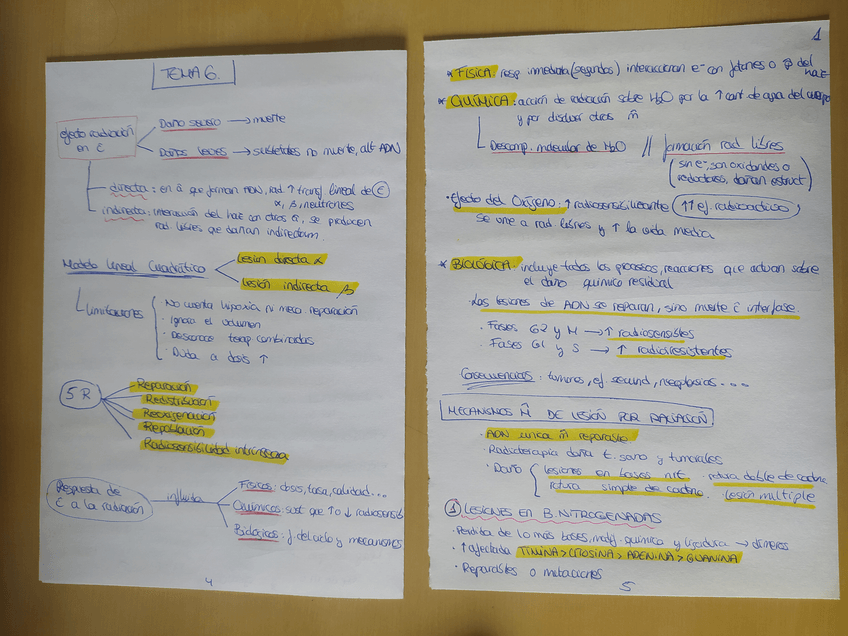 TEMA 6.
efecto radiación en c̄
Daño severo → muerte
Daños leves → subletales no muerte, alt ADN
directa: en c̄ que forman ADN, rad ↑ transf lineal de E
α, β, neutrones
indirecta: interacción del haz con otros c̄, se producen
rad libres que dañan indirectam.
Modelo lineal cuadrático
Lesión directa α
Lesión indirecta β
Limitaciones
· No cuenta hipoxia ni meca reparación
· Ignora el volumen
· Desconoce terap combinadas
· Duda a dosis ↑
5 R
Reparación
Redistribución
Reoxigenación
Repoblación
Radiosensibilidad intrínseca
Respuesta de c̄ a la radiación
influida
Físicos: dosis, tasa, calidad...
Químicos: sust que ↑ o ↓ radiosensib
Biológicos: f. del ciclo y mecanismos
4
1
* FÍSICA: resp inmediata (segundos) interaccionan e⁻ con fotones o p̄ del haz
* QUÍMICA: acción de radiación sobre H₂O por la ↑ cant de agua del cuerpo
y por disolver otros m̄
Descomp. molecular de H₂O // formación rad libres
(sin e⁻, son oxidandes o
reductoras, dañan estruct)
· Efecto del Oxígeno: ↑ radiosensibilizante (↑↑ ef. radioactivo)
Se une a rad libres y ↑ la vida media
* BIOLÓGICA: incluye todos los procesos, reacciones que actuan sobre
el daño químico residual
· Las lesiones de ADN se reparan, sino muerte c̄ interfase.
· Fases G2 y M → ↑ radiosensibles
· Fases G1 y S → ↑ radiorresistentes
Consecuencias: tumores, ef second, neoplasias....
MECANISMOS M̄ DE LESIÓN POR RADIACIÓN.
· ADN unica m̄ reparable
· Radioterapia daña t. sano y tumorales
· Daño
lesiones en bases nit · rotura doble de cadena
rotura simple de cadena. · lesión multiple
① LESIONES EN B. NITROGENADAS
· Perdida de lo más bases, modf química y ligadura → dímeros
· ↑ afectada TIMINA > CITOSINA > ADENINA > GUANINA
· Reparables o mutaciones
5